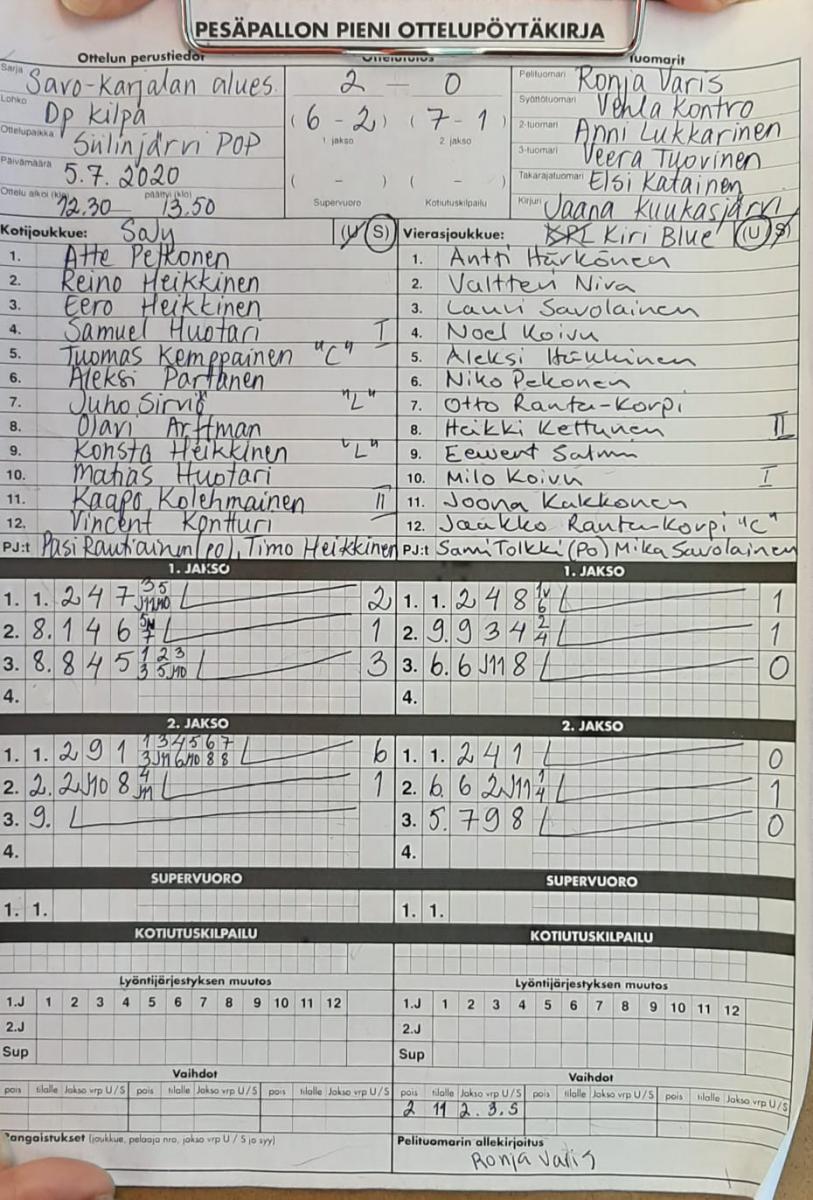 PESÄPALLON PIENI OTTELUPÖYTÄKIRJA
Ottelun perustiedot
Tuomarit
Sarja Savo-Karjalan alues.
Lohko Dp kilpa
Ottelupaikka Siilinjärvi POP
Päivämäärä 5.7.2020
Ottelu alkoi (klo) 12.30 päättyi (klo) 13.50
2 — 0
(6 - 2) (7 - 1)
1. jakso 2. jakso
( - ) ( - )
Supervuoro Kotiutuskilpailu
Pelituomari Ronja Varis
Syöttötuomari Venla Kontro
2-tuomari Anni Lukkarinen
3-tuomari Veera Tuovinen
Takarajatuomari Elsi Katainen
Kirjuri Jaana Kuukasjärvi
Kotijoukkue: SaJy (U/S)
1. Atte Pelkonen
2. Reino Heikkinen
3. Eero Heikkinen
4. Samuel Huotari I
5. Tuomas Kemppainen "C"
6. Aleksi Partanen
7. Juho Sirviö "L"
8. Olavi Arffman
9. Konsta Heikkinen "L"
10. Matias Huotari
11. Kaapo Kolehmainen II
12. Vincent Kontturi
PJ:t Pasi Rautiainen (po), Timo Heikkinen
Vierasjoukkue: Kiri Blue (U/S)
1. Antti Härkönen
2. Valtteri Niva
3. Lauri Savolainen
4. Noel Koivu
5. Aleksi Häkkinen
6. Niko Pekonen
7. Otto Ranta-Korpi
8. Heikki Kettunen II
9. Eewert Salmi
10. Milo Koivu I
11. Joona Kakkonen
12. Jaakko Ranta-Korpi "C"
PJ:t Sami Tolkki (Po) Mika Savolainen
1. JAKSO
1. 1. 2 4 7 3 5 J11 J10 2
2. 8. 1 4 6 1
3. 8. 8 4 5 1 2 3 3 5 J10 3
4.
1. JAKSO
1. 1. 2 4 8 1v 6 1
2. 9. 9 3 4 2 4 1
3. 6. 6 J11 8 0
4.
2. JAKSO
1. 1. 2 9 1 1 3 4 5 6 7 3 J11 6 J10 8 8 6
2. 2. 2 J10 8 4 J11 1
3. 9.
4.
2. JAKSO
1. 1. 2 4 1 0
2. 6. 6 2 J11 1 4 1
3. 5. 7 9 8 0
4.
SUPERVUORO
1. 1.
SUPERVUORO
1. 1.
KOTIUTUSKILPAILU
KOTIUTUSKILPAILU
Lyöntijärjestyksen muutos
1.J 1 2 3 4 5 6 7 8 9 10 11 12
2.J
Sup
Lyöntijärjestyksen muutos
1.J 1 2 3 4 5 6 7 8 9 10 11 12
2.J
Sup
Vaihdot
pois tilalle Jakso vrp U/S pois tilalle Jakso vrp U/S pois tilalle Jakso vrp U/S
Vaihdot
pois tilalle Jakso vrp U/S pois tilalle Jakso vrp U/S pois tilalle Jakso vrp U/S
2 11 2. 3. S
Rangaistukset (joukkue, pelaaja nro, jakso vrp U / S ja syy)
Pelituomarin allekirjoitus
Ronja Varis